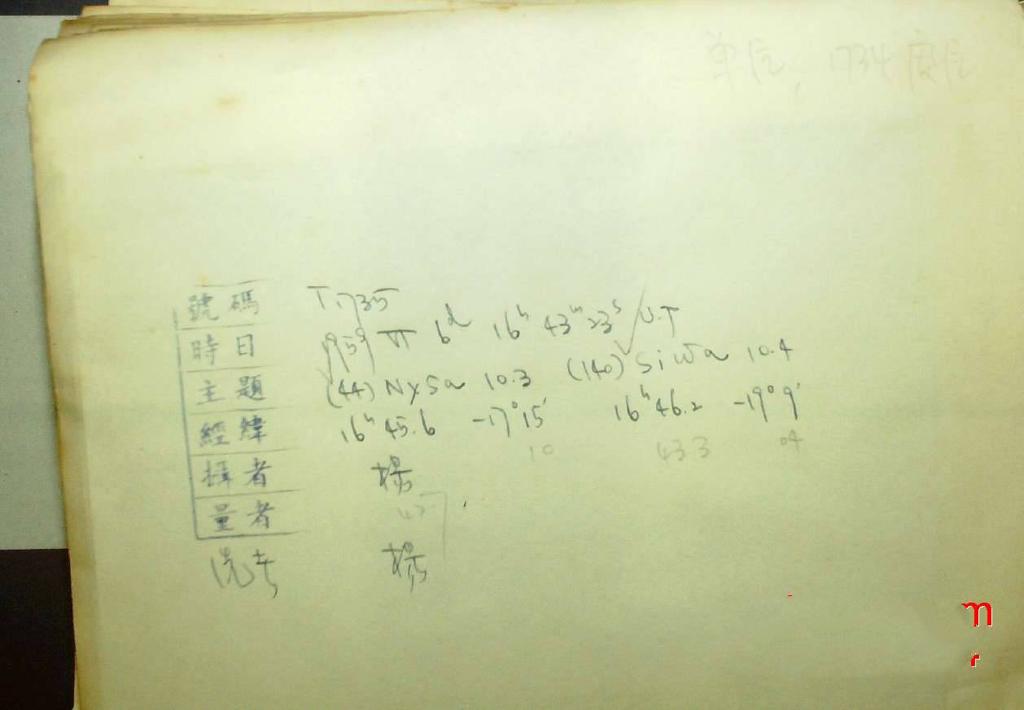 單位, 1734 度位
號碼 T.1735
時日 1959 VI 6d 16h 43m 23s U.T
主題 (44) Nysa 10.3 (140) Siwa 10.4
經緯 16h 45.6 -17°15' 16h 46.2 -19°9'
10 43.3 04
攝者 楊
量者
洗者 楊
m
r